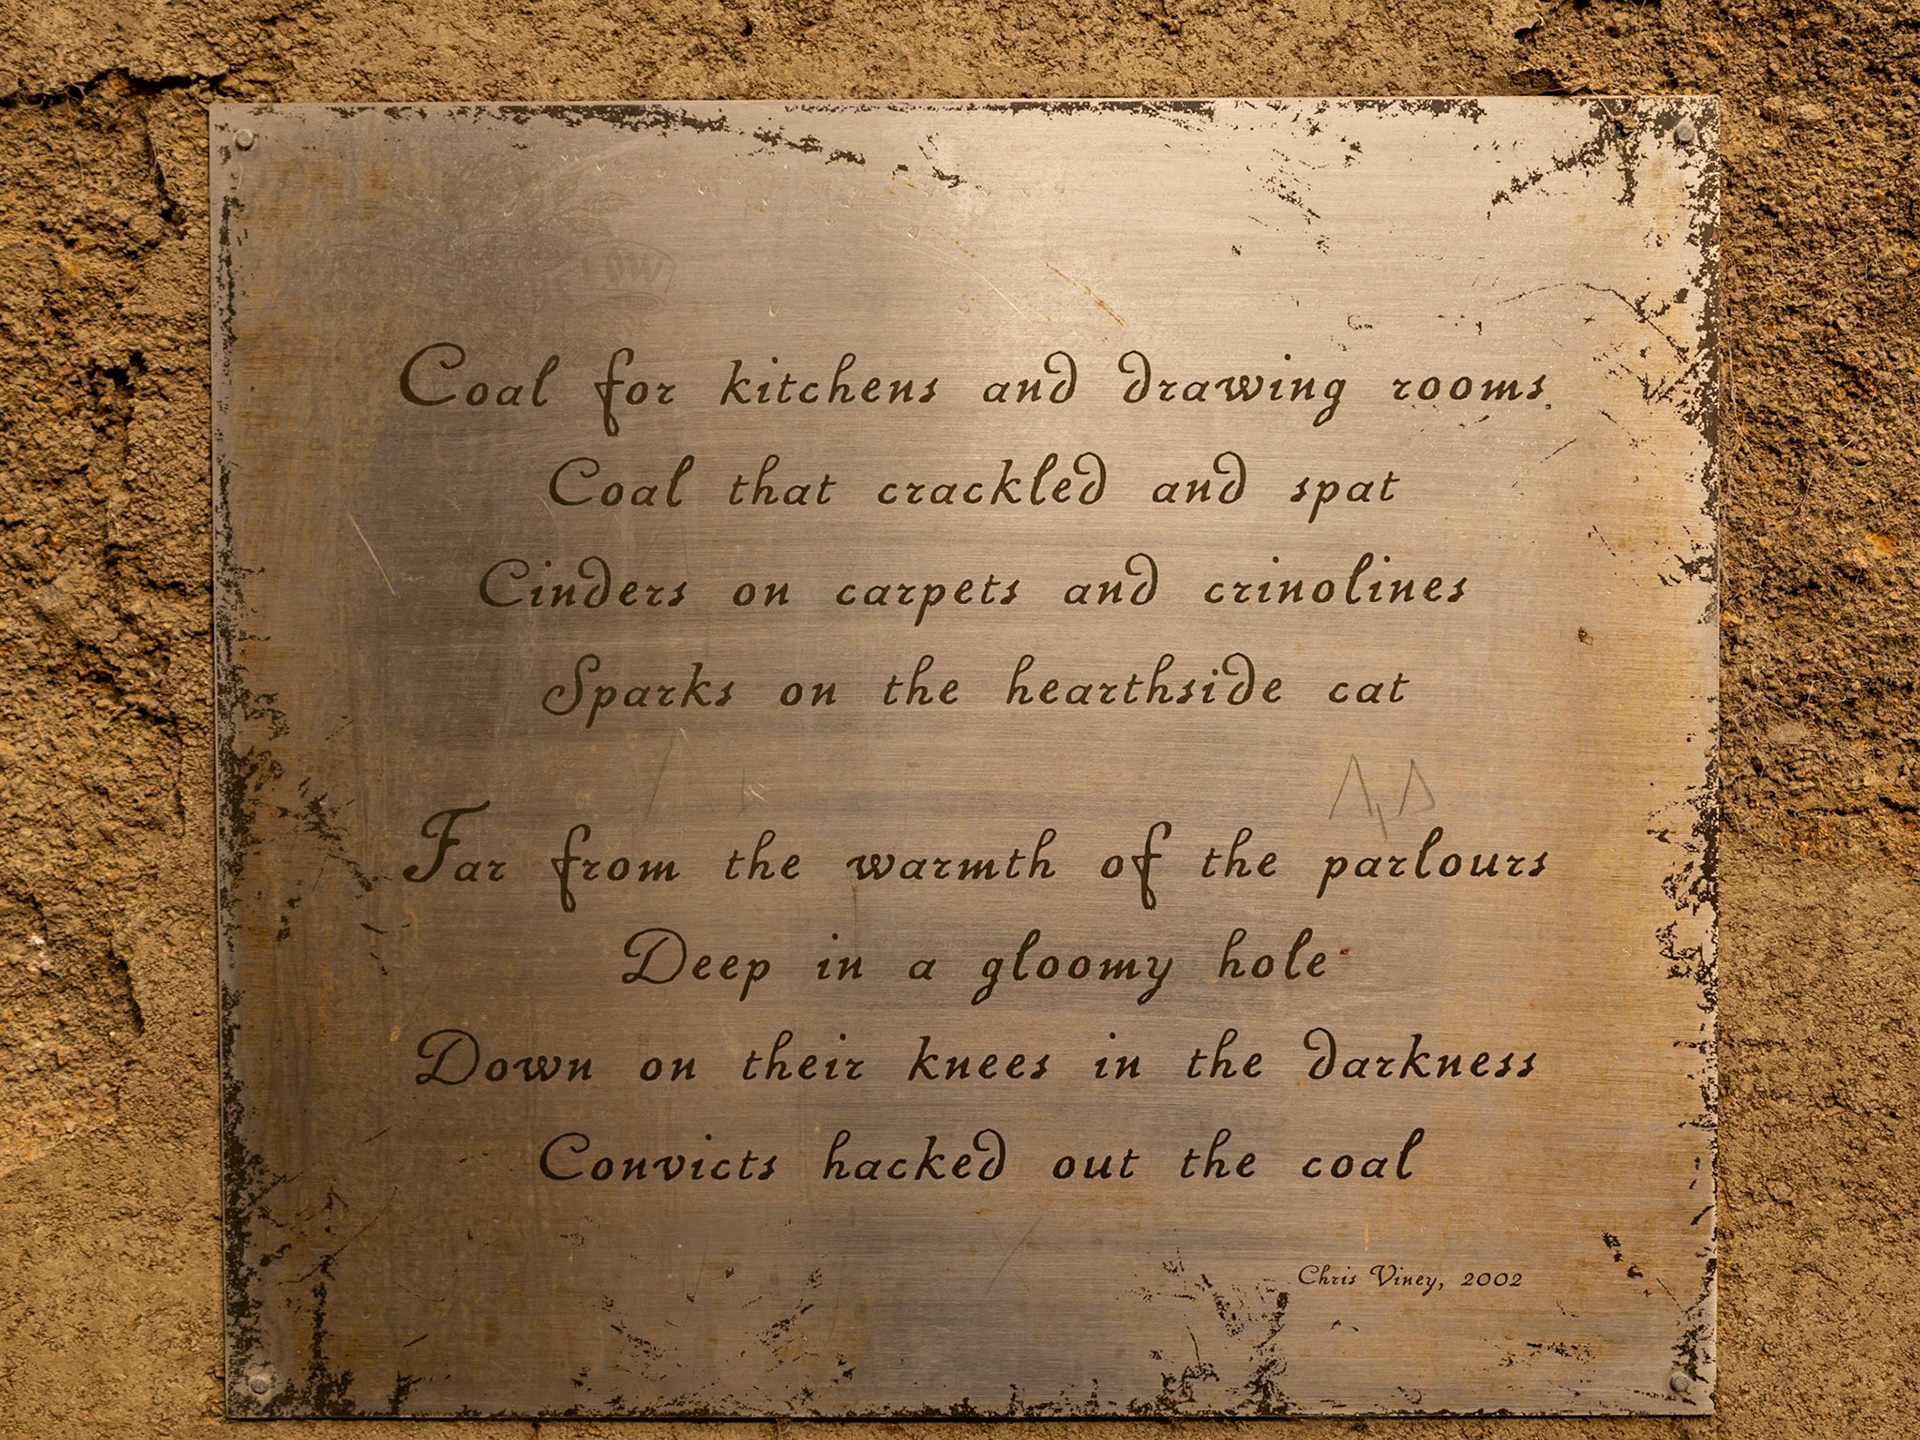 Coal for kitchens and drawing rooms
Coal that crackled and spat
Cinders on carpets and crinolines
Sparks on the hearthside cat
Far from the warmth of the parlours
Deep in a gloomy hole
Down on their knees in the darkness
Convicts hacked out the coal
Chris Viney, 2002